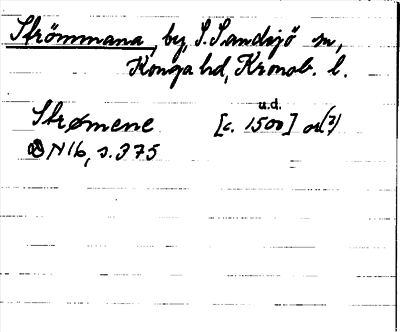 Strömmana, by, S. Sandsjö sn,
Konga hd, Kronob. l.
u.d.
Strømene [c. 1500] or(?)
DN 16, s. 375